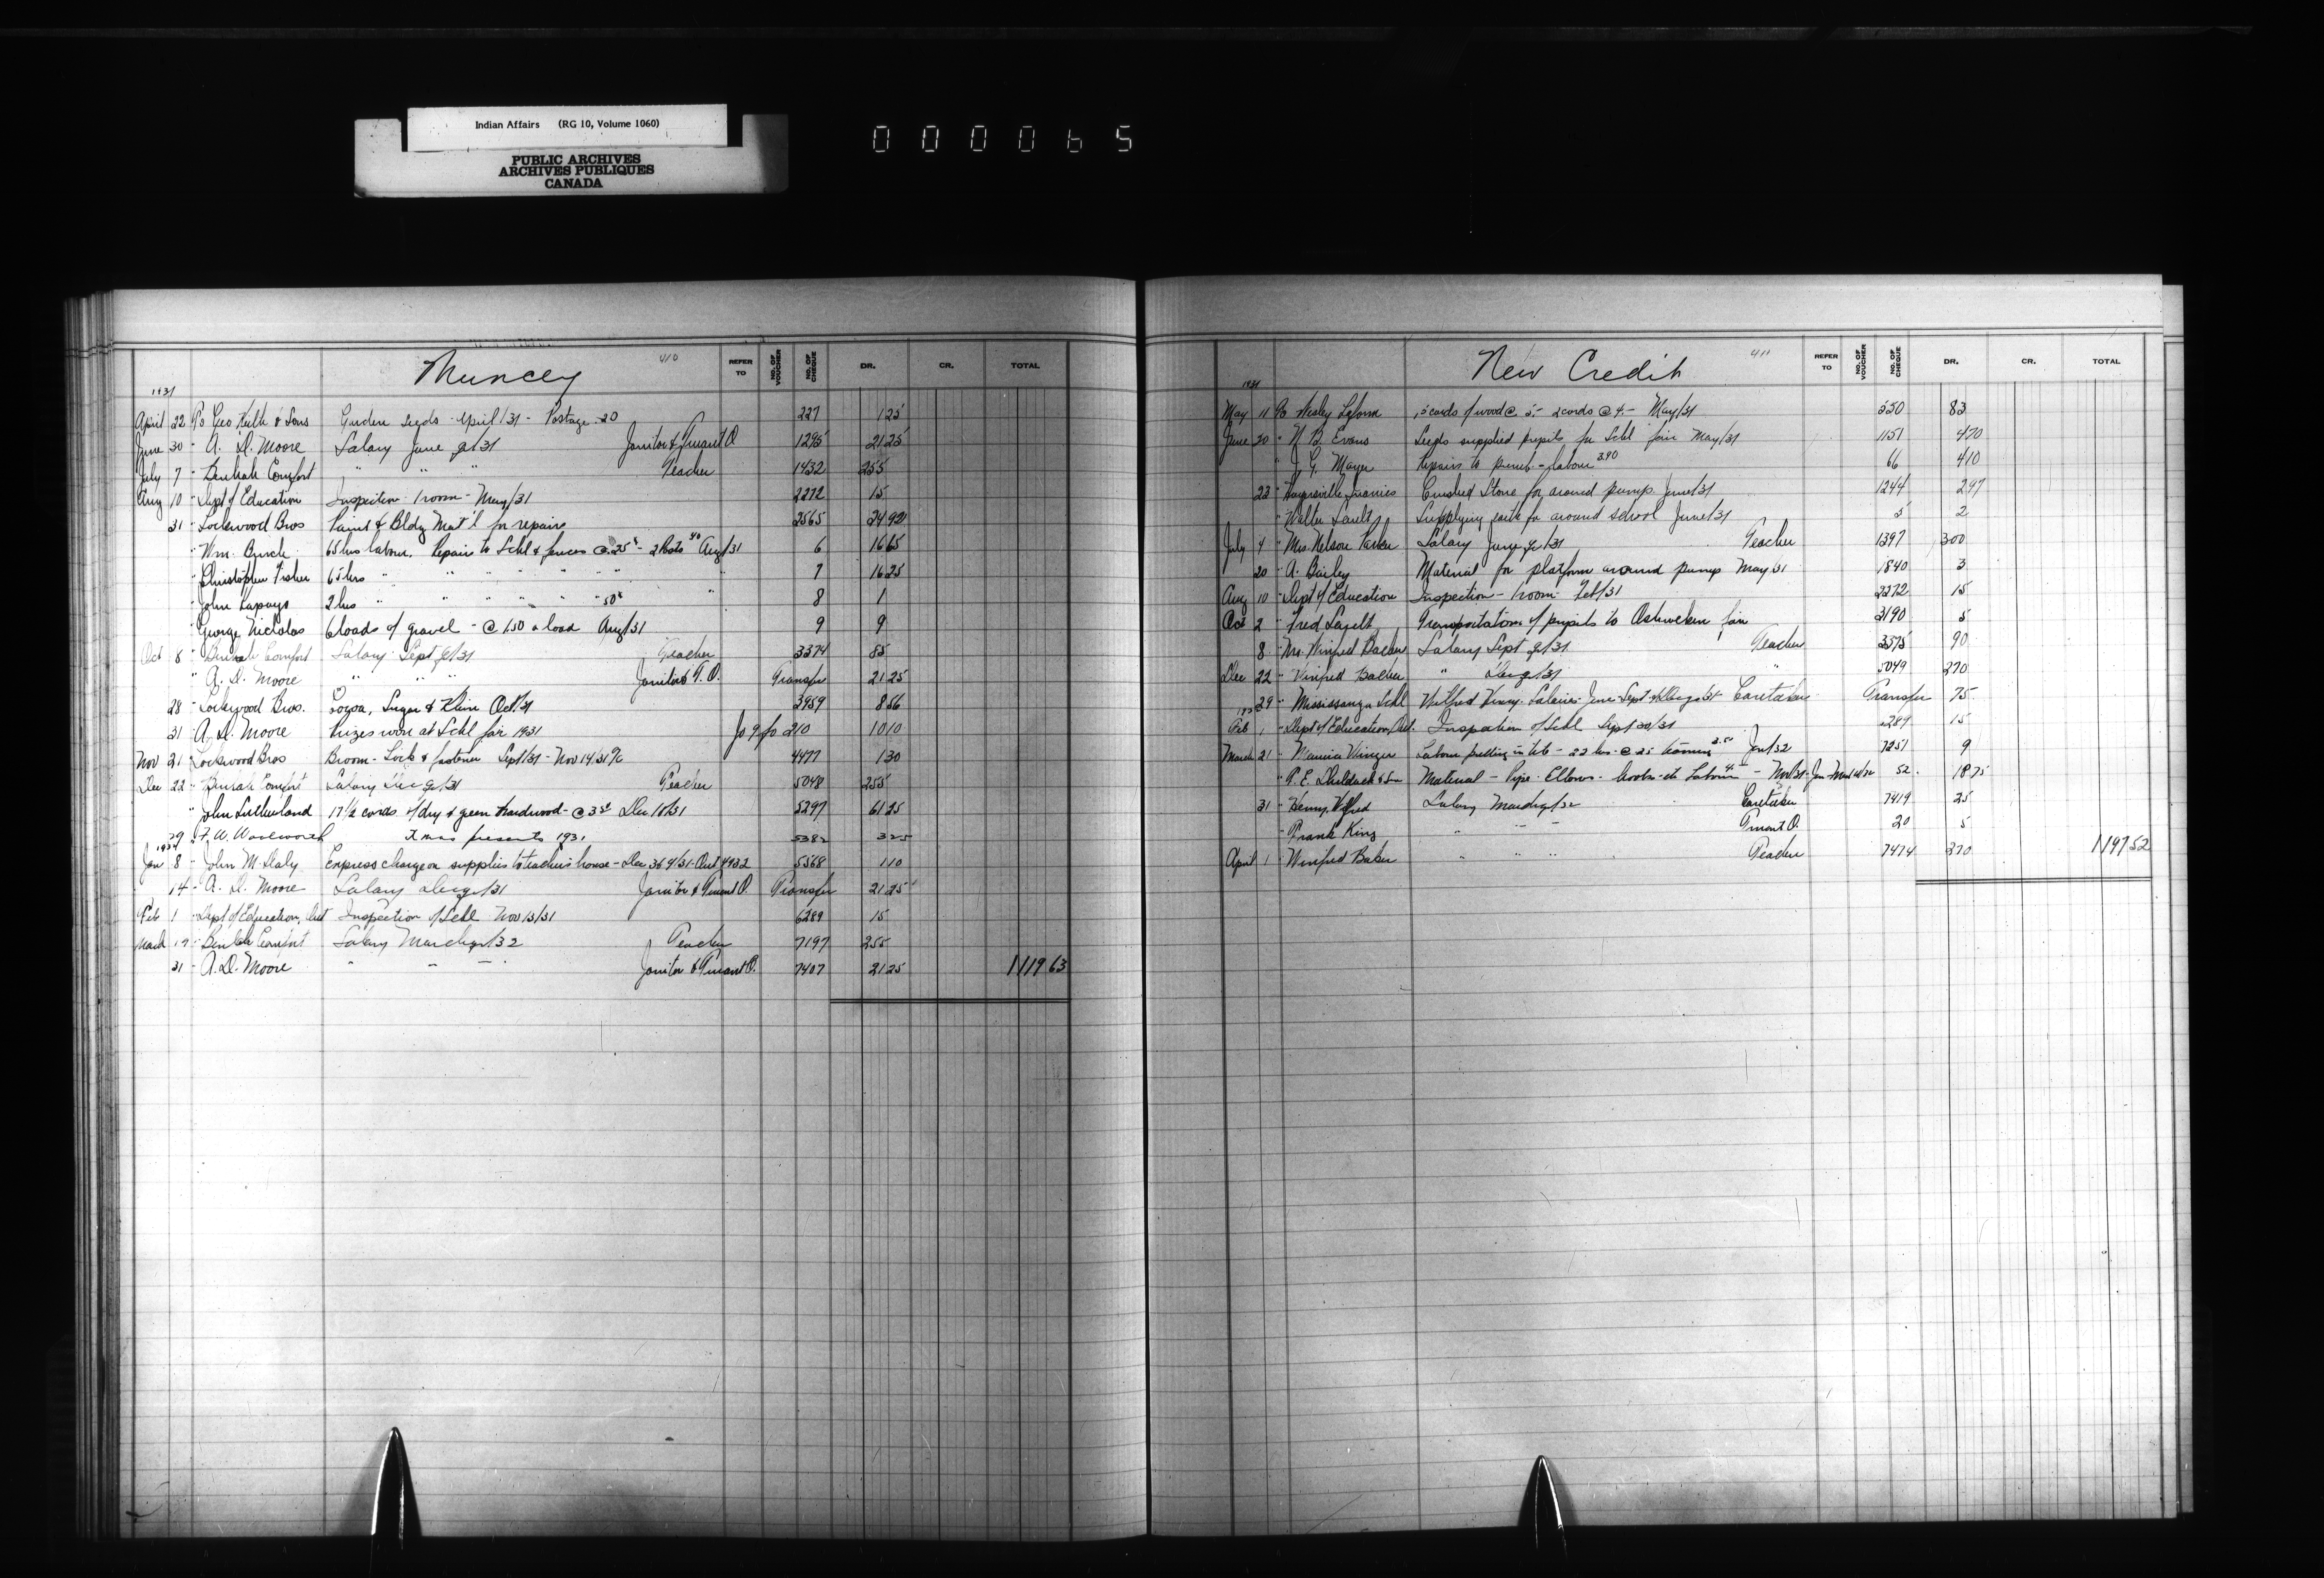 Indian Affairs (RG 10, Volume 1060)
PUBLIC ARCHIVES
ARCHIVES PUBLIQUES
CANADA
000065
Muncey 410 REFER TO NO. OF VOUCHER NO. OF CHEQUE DR. CR. TOTAL
1931
April 22 To Geo Keith & Sons Garden seeds - April/31 - Postage .20 227 1 25
June 30 " A. D. Moore Salary June qr/31 Janitor & Truant O 1295 21 25
July 7 " Beulah Comfort " " " Teacher 1432 255
Aug 10 " Dept of Education Inspection 1 room - May/31 2272 15
31 " Lockwood Bros Paint & Bldg Mat'l for repairs 2565 24 92
" Wm. Burch 65 hrs labour. Repairs to Schl & fences @ .25¢ - 2 Posts 40 Aug/31 6 16 65
" Christopher Fisher 65 hrs " " " " " " " 7 16 25
" John 2 hrs " " " " " 50¢ " 8 1
" George Nicholas 6 loads of gravel - @ 1.50 a load Aug/31 9 9
Oct 8 " Beulah Comfort Salary Sept qr/31 Teacher 3374 85
" A. D. Moore " " " Janitor & T. O. Transfer 21 25
28 " Lockwood Bros. Cocoa, Sugar & Klim Oct/31 3959 8 56
31 " A. D. Moore Prizes won at Schl fair 1931 Jo 9 fo 210 10 10
Nov 21 " Lockwood Bros Broom - Lock & fastener Sept/31 - Nov 14/31 4477 1 30
Dec 22 " Beulah Comfort Salary Dec qr/31 Teacher 5048 255
" John Sutherland 17½ cords of dry & green hardwood - @ 3.50 Dec 10/31 5297 61 25
29 " F. W. Woolworth Xmas presents 1931 5382 3 25
1932
Jan 8 " John M. Daly Express charge on supplies to teachers house - Dec 5568 1 10
14 " A. D. Moore Salary Dec qr/31 Janitor & Truant O. Transfer 21 25
Feb 1 " Dept of Education, Ont Inspection of Schl Nov 13/31 6289 15
March 19 " Beulah Comfort Salary March qr/32 Teacher 7197 255
31 " A. D. Moore " " " Janitor & Truant O. 7407 21 25 1119 63
New Credit 411 REFER TO NO. OF VOUCHER NO. OF CHEQUE DR. CR. TOTAL
1931
May 11 To Wesley Laform 15 cords of wood @ 5.- 2 cords @ 4.- May/31 550 83
June 20 " N. B. Evans Seeds supplied pupils for Schl fair May/31 1151 4 70
" J. G. Mayer Repairs to pump - labour 3.90 66 4 10
23 " Hagersville Quarries Crushed Stone for around pump June/31 1244 2 47
" Walter Sault Supplying earth for around school June/31 5 2
July 4 " Mrs. Nelson Parker Salary June qr/31 Teacher 1397 300
20 " A. Bailey Material for platform around pump May/31 1840 3
Aug 10 " Dept of Education Inspection - 1 room Feb/31 2272 15
Oct 2 " Fred Transportation of pupils to Ohsweken fair 3190 5
8 " Mrs. Winifred Baker Salary Sept qr/31 Teacher 3375 90
Dec 22 " Winifred Baker " Dec qr/31 " 5049 270
29 " Mississauga Schl Wilfred Henry Salaries June Sept & Dec qr/31 Caretaker Transfer 75
1932
Feb 1 " Dept of Education, Ont. Inspection of Schl Sept 30/31 6289 15
March 21 " Maurice Labour putting in - 22 hrs. @ 25 3.50 Jan/32 7251 9
" Material - Pipe - Elbows - etc Labour 4.- 52 18 75
31 " Henry Wilfred Salary March qr/32 Caretaker 7419 25
" Frank King " " " Truant O. 20 5
April 1 " Winifred Baker " " " Teacher 7474 270 1197 52